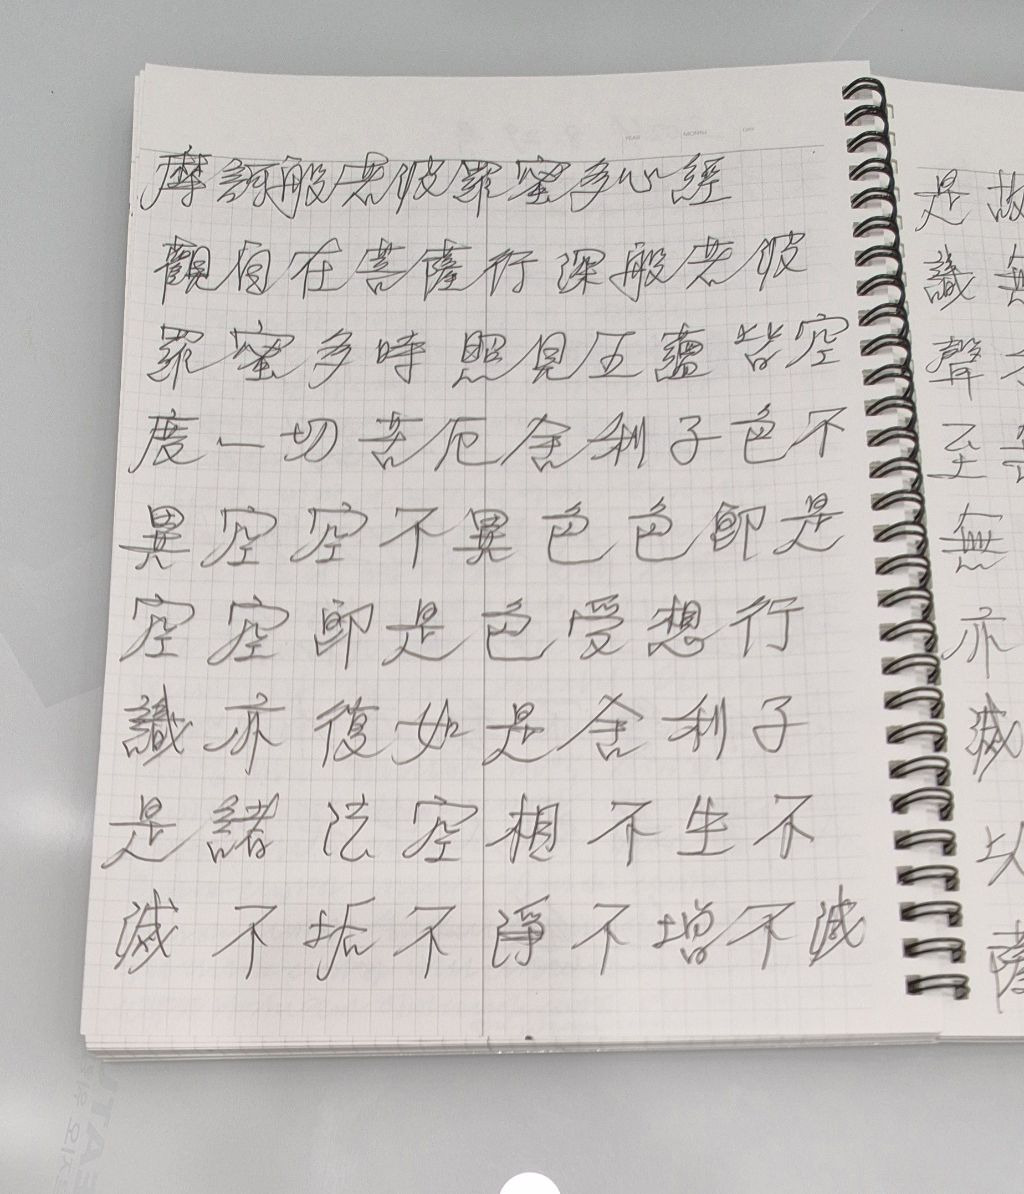 YEAR MONTH DAY
摩訶般若波羅蜜多心經
觀自在菩薩行深般若波
羅蜜多時照見五蘊皆空
度一切苦厄舍利子色不
異空空不異色色卽是
空空卽是色受想行
識亦復如是舍利子
是諸法空相不生不
滅不垢不淨不增不減
是故
識無
聲
至
無
亦
滅
以
薩